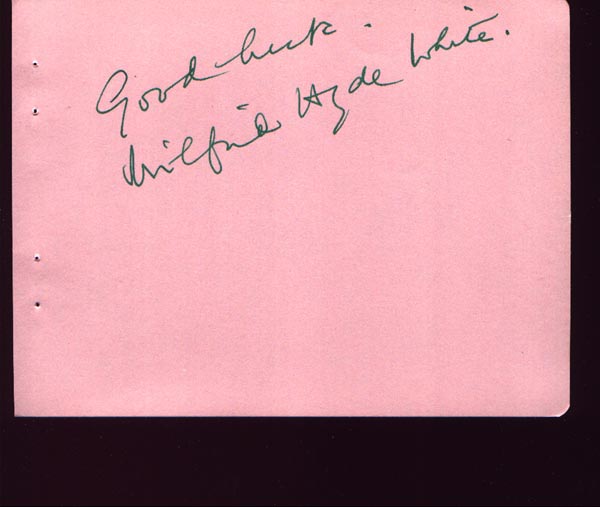 Good luck.
Wilfrid Hyde White.